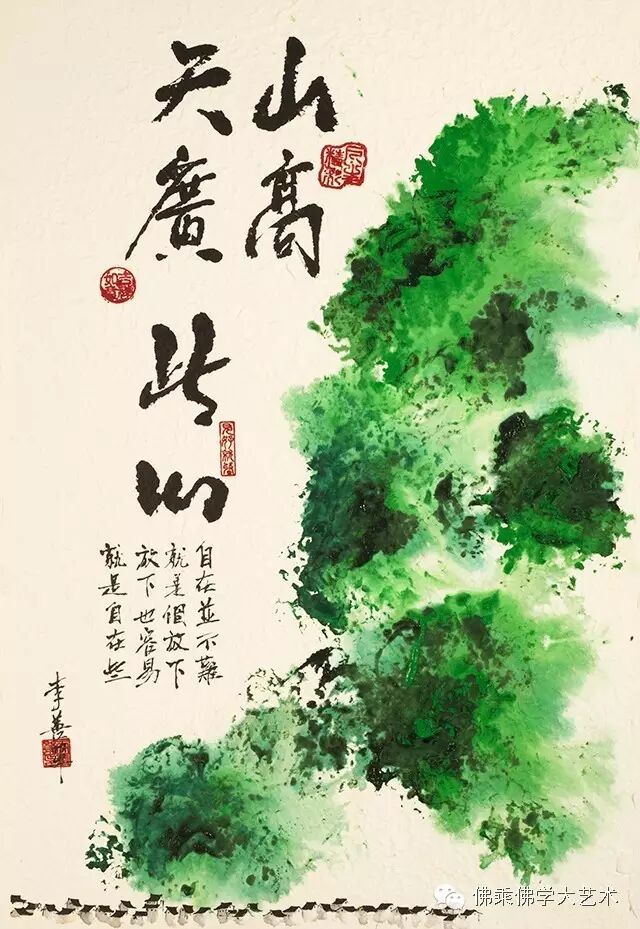 山高
天廣此心
自在並不難
就是個放下
放下也容易
就是自在些
李善單
佛乘佛学大艺术